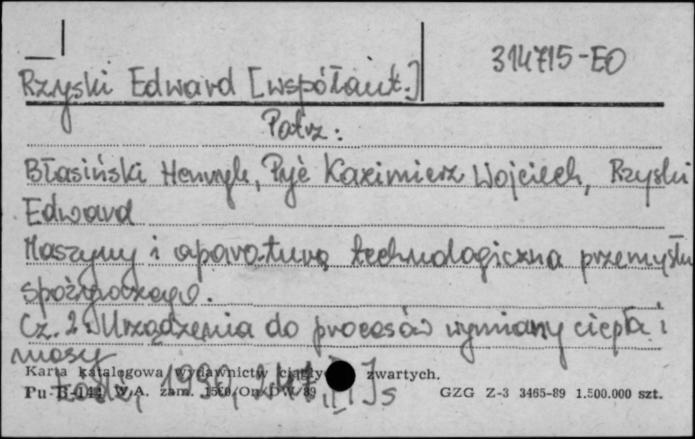 314715-EO
Rzyski Edward [współaut.]
Patrz:
Błasiński Henryk, Pyć Kazimierz Wojciech, Rzyski
Edward
Maszyny i aparatura technologiczna przemysłu
spożywczego.
Cz. 2: Urządzenia do procesów wymiany ciepła i
masy
Karta katalogowa wydawnictw ciągłych zwartych.
Łódź, 1991, 241, [1] s
Pu-B-144 W.A. zam. 1500/On/DW/89 GZG Z-3 3465-89 1.500.000 szt.